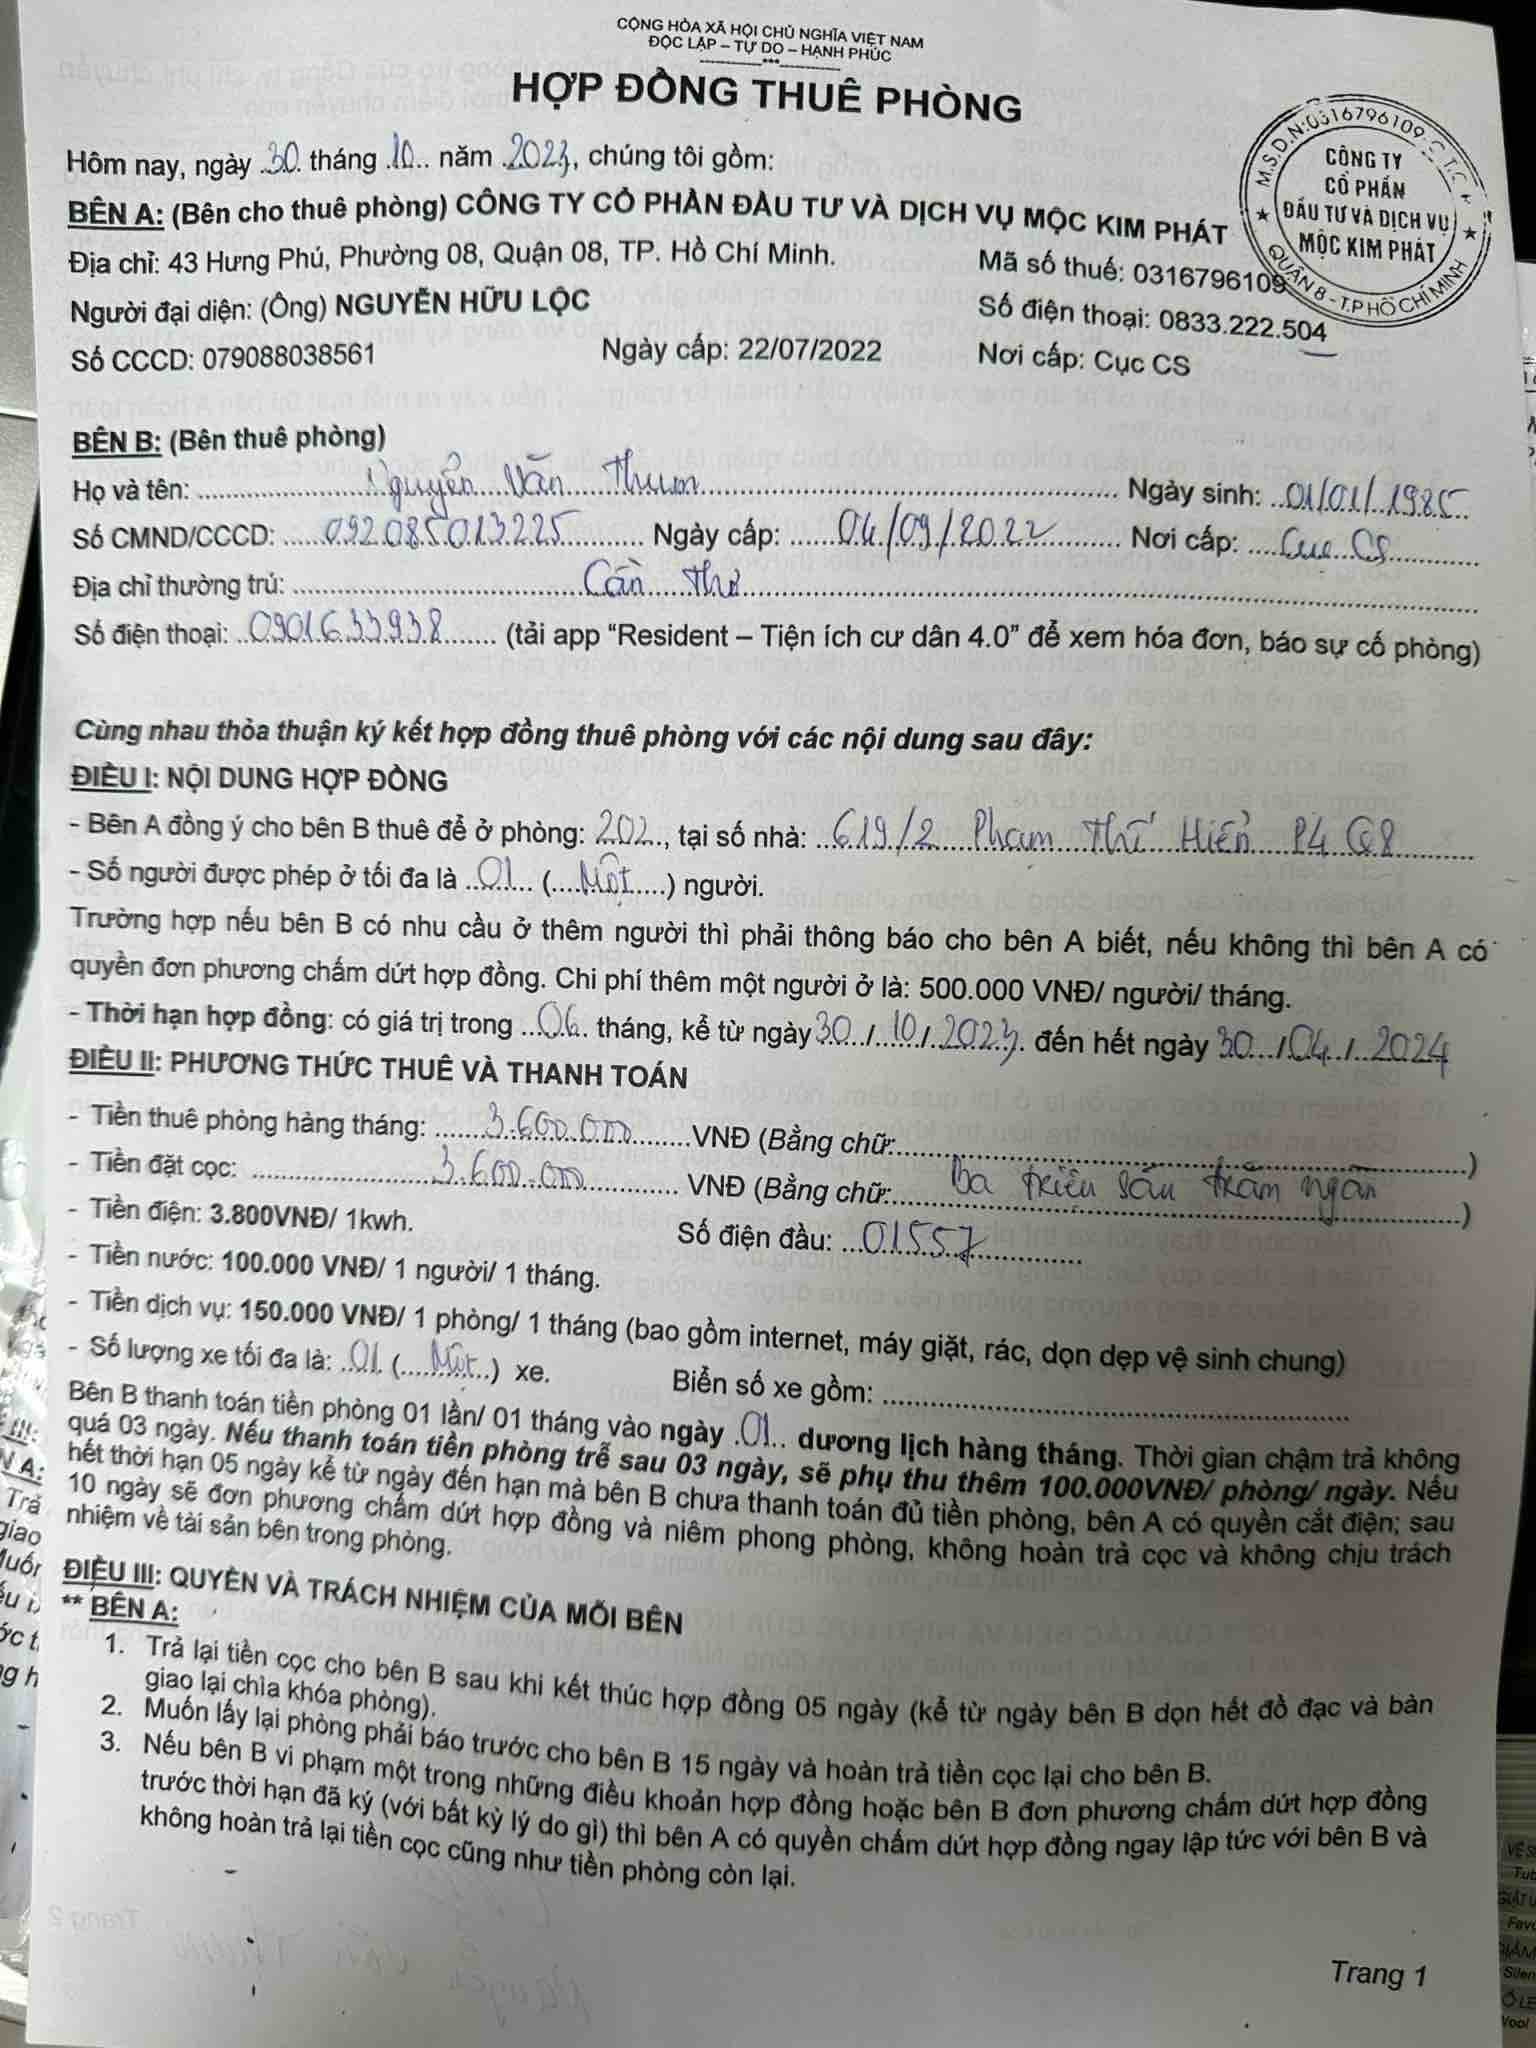 CỘNG HÒA XÃ HỘI CHỦ NGHĨA VIỆT NAM
ĐỘC LẬP – TỰ DO – HẠNH PHÚC
HỢP ĐỒNG THUÊ PHÒNG
M.S.D.N:0316796109-C.T.C.K
CÔNG TY
CỔ PHẦN
ĐẦU TƯ VÀ DỊCH VỤ
MỘC KIM PHÁT
QUẬN 8 - T.P HỒ CHÍ MINH
Hôm nay, ngày 30 tháng 10 năm 2023, chúng tôi gồm:
BÊN A: (Bên cho thuê phòng) CÔNG TY CỔ PHẦN ĐẦU TƯ VÀ DỊCH VỤ MỘC KIM PHÁT
Địa chỉ: 43 Hưng Phú, Phường 08, Quận 08, TP. Hồ Chí Minh. Mã số thuế: 0316796109
Người đại diện: (Ông) NGUYỄN HỮU LỘC Số điện thoại: 0833.222.504
Số CCCD: 079088038561 Ngày cấp: 22/07/2022 Nơi cấp: Cục CS
BÊN B: (Bên thuê phòng)
Họ và tên: Nguyễn Văn Thum Ngày sinh: 01/01/1985
Số CMND/CCCD: 092085013225 Ngày cấp: 04/09/2022 Nơi cấp: Cục CS
Địa chỉ thường trú: Cần Thơ
Số điện thoại: 0901633938 (tải app “Resident – Tiện ích cư dân 4.0” để xem hóa đơn, báo sự cố phòng)
Cùng nhau thỏa thuận ký kết hợp đồng thuê phòng với các nội dung sau đây:
ĐIỀU I: NỘI DUNG HỢP ĐỒNG
- Bên A đồng ý cho bên B thuê để ở phòng: 202, tại số nhà: 619/2 Phạm Thế Hiển P4 Q8
- Số người được phép ở tối đa là 01 (Một) người.
Trường hợp nếu bên B có nhu cầu ở thêm người thì phải thông báo cho bên A biết, nếu không thì bên A có
quyền đơn phương chấm dứt hợp đồng. Chi phí thêm một người ở là: 500.000 VNĐ/ người/ tháng.
- Thời hạn hợp đồng: có giá trị trong 06 tháng, kể từ ngày 30/10/2023 đến hết ngày 30/04/2024
ĐIỀU II: PHƯƠNG THỨC THUÊ VÀ THANH TOÁN
- Tiền thuê phòng hàng tháng: 3.600.000 VNĐ (Bằng chữ: )
- Tiền đặt cọc: 3.600.000 VNĐ (Bằng chữ: Ba triệu sáu trăm ngàn )
- Tiền điện: 3.800VNĐ/ 1kwh. Số điện đầu: 01557
- Tiền nước: 100.000 VNĐ/ 1 người/ 1 tháng.
- Tiền dịch vụ: 150.000 VNĐ/ 1 phòng/ 1 tháng (bao gồm internet, máy giặt, rác, dọn dẹp vệ sinh chung)
- Số lượng xe tối đa là: 01 (Một) xe. Biển số xe gồm:
Bên B thanh toán tiền phòng 01 lần/ 01 tháng vào ngày 01 dương lịch hàng tháng. Thời gian chậm trả không
quá 03 ngày. Nếu thanh toán tiền phòng trễ sau 03 ngày, sẽ phụ thu thêm 100.000VNĐ/ phòng/ ngày. Nếu
hết thời hạn 05 ngày kể từ ngày đến hạn mà bên B chưa thanh toán đủ tiền phòng, bên A có quyền cắt điện; sau
10 ngày sẽ đơn phương chấm dứt hợp đồng và niêm phong phòng, không hoàn trả cọc và không chịu trách
nhiệm về tài sản bên trong phòng.
ĐIỀU III: QUYỀN VÀ TRÁCH NHIỆM CỦA MỖI BÊN
** BÊN A:
1. Trả lại tiền cọc cho bên B sau khi kết thúc hợp đồng 05 ngày (kể từ ngày bên B dọn hết đồ đạc và bàn
giao lại chìa khóa phòng).
2. Muốn lấy lại phòng phải báo trước cho bên B 15 ngày và hoàn trả tiền cọc lại cho bên B.
3. Nếu bên B vi phạm một trong những điều khoản hợp đồng hoặc bên B đơn phương chấm dứt hợp đồng
trước thời hạn đã ký (với bất kỳ lý do gì) thì bên A có quyền chấm dứt hợp đồng ngay lập tức với bên B và
không hoàn trả lại tiền cọc cũng như tiền phòng còn lại.
Trang 1